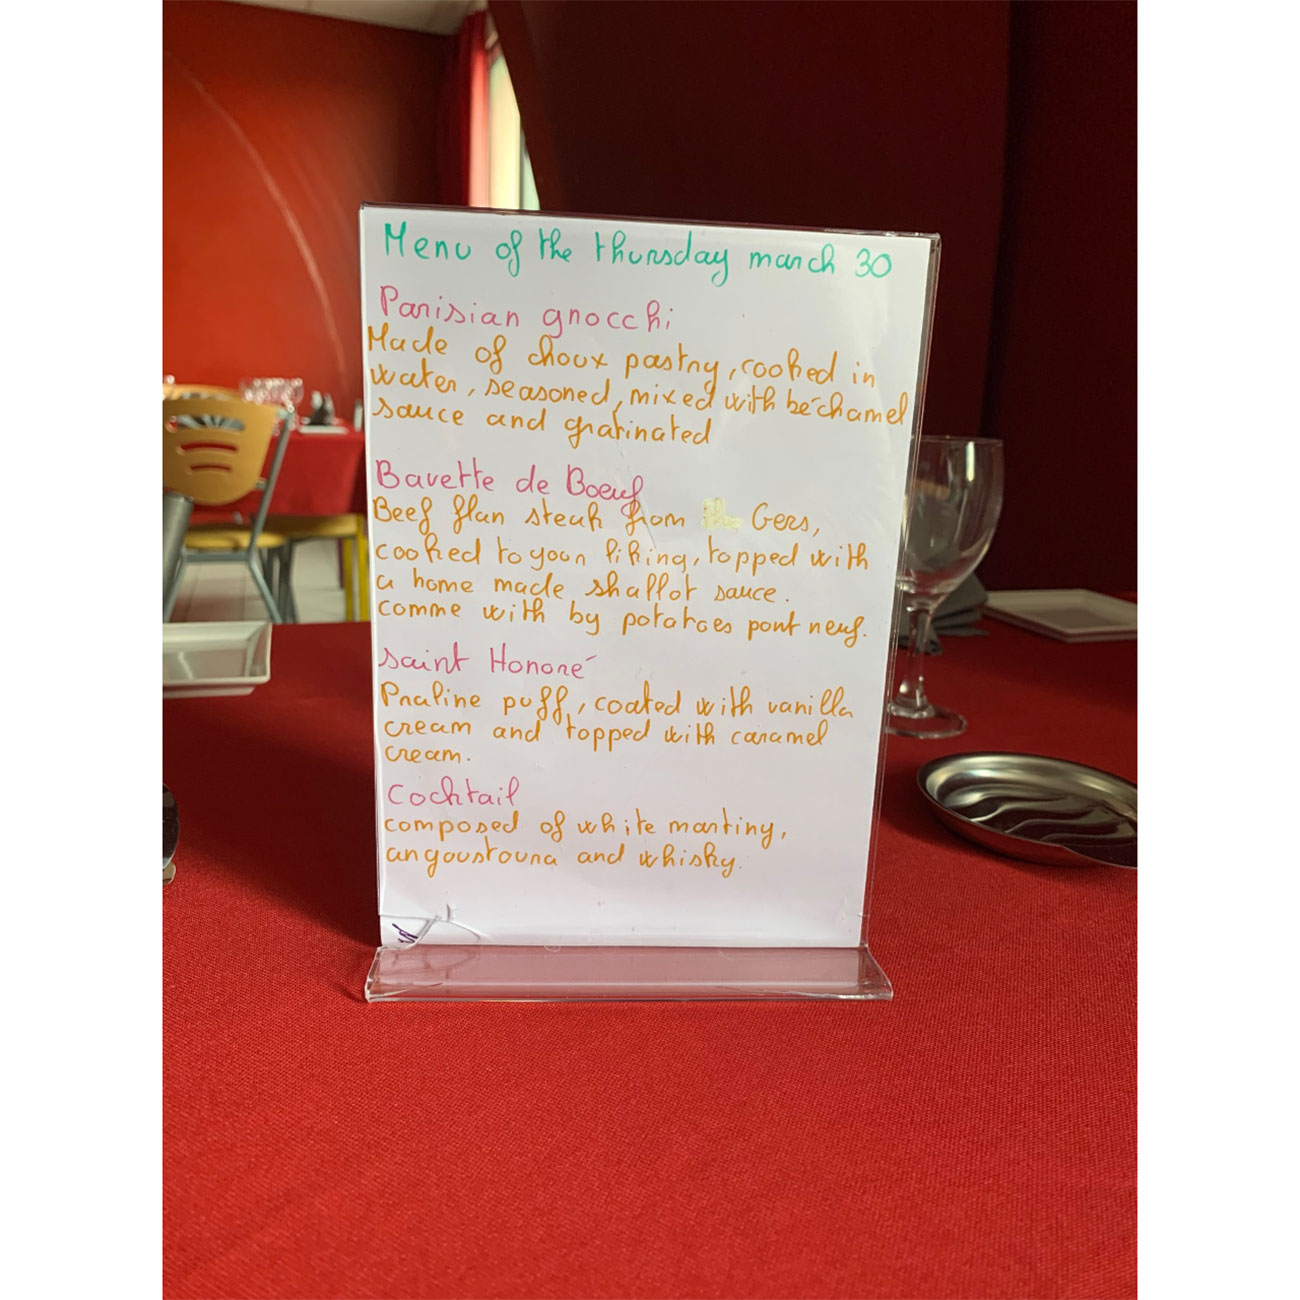 Menu of the thursday march 30
Parisian gnocchi
Made of choux pastry, cooked in
water, seasoned, mixed with béchamel
sauce and gratinated
Bavette de Boeuf
Beef flan steak from the Gers,
cooked to your liking, topped with
a home made shallot sauce.
comme with by potatoes pont neuf.
saint Honoré
Praline puff, coated with vanilla
cream and topped with caramel
cream.
Cocktail
composed of white martiny,
angoustoura and whisky.